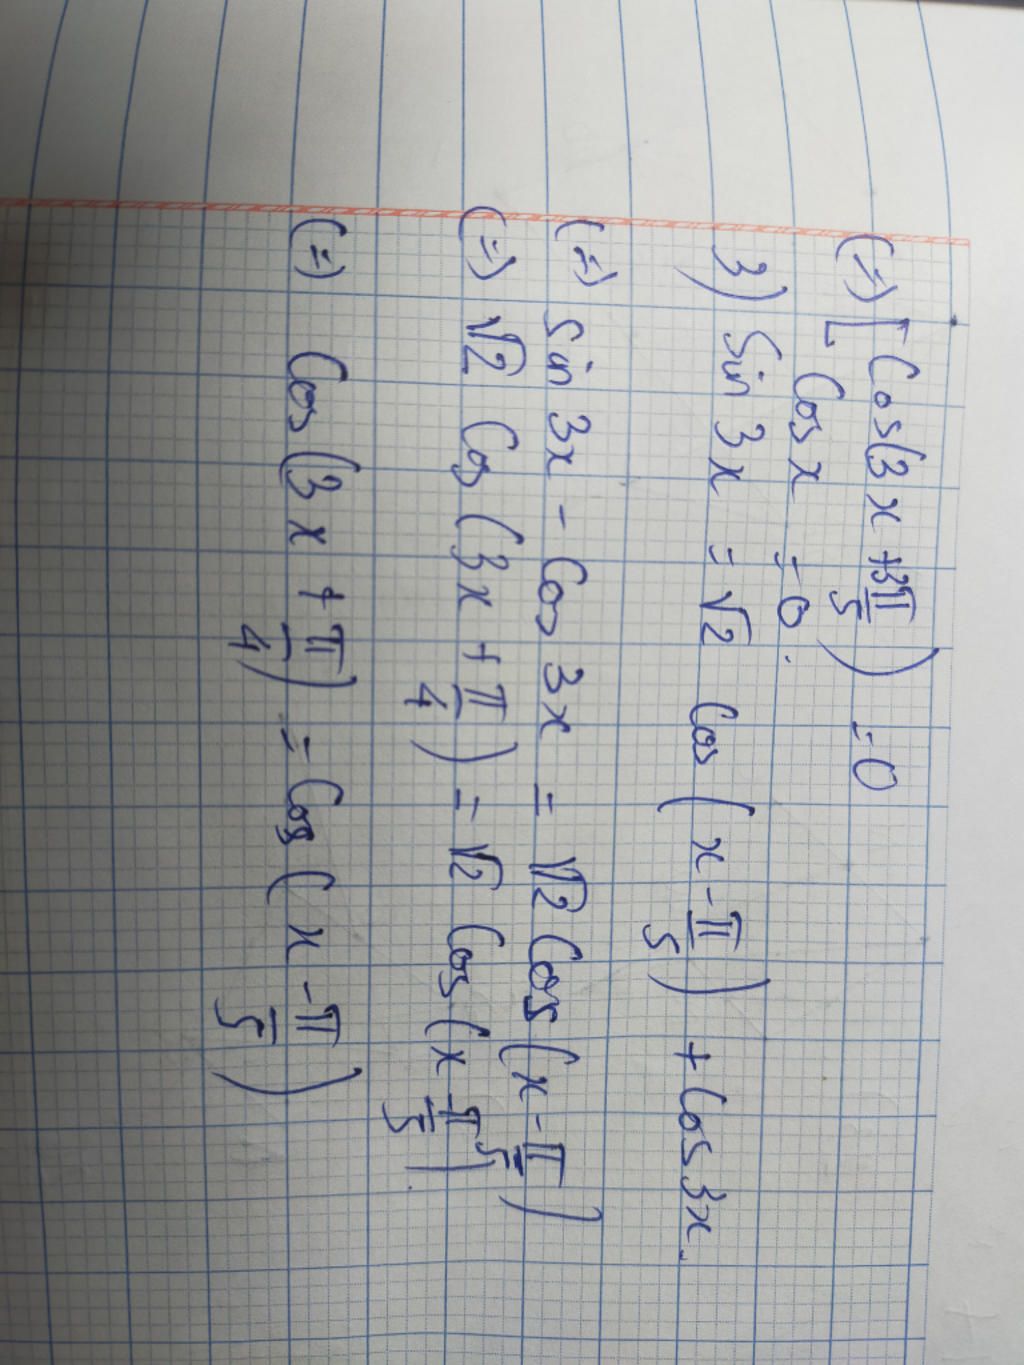 (=) [ Cos(3x + 3π/5) = 0
Cos x = 0.
3) Sin 3x = √2 Cos (x - π/5) + Cos 3x.
(=) Sin 3x - Cos 3x = √2 Cos (x - π/5)
(=) √2 Cos (3x + π/4) = √2 Cos (x - π/5).
(=) Cos (3x + π/4) = Cos (x - π/5)